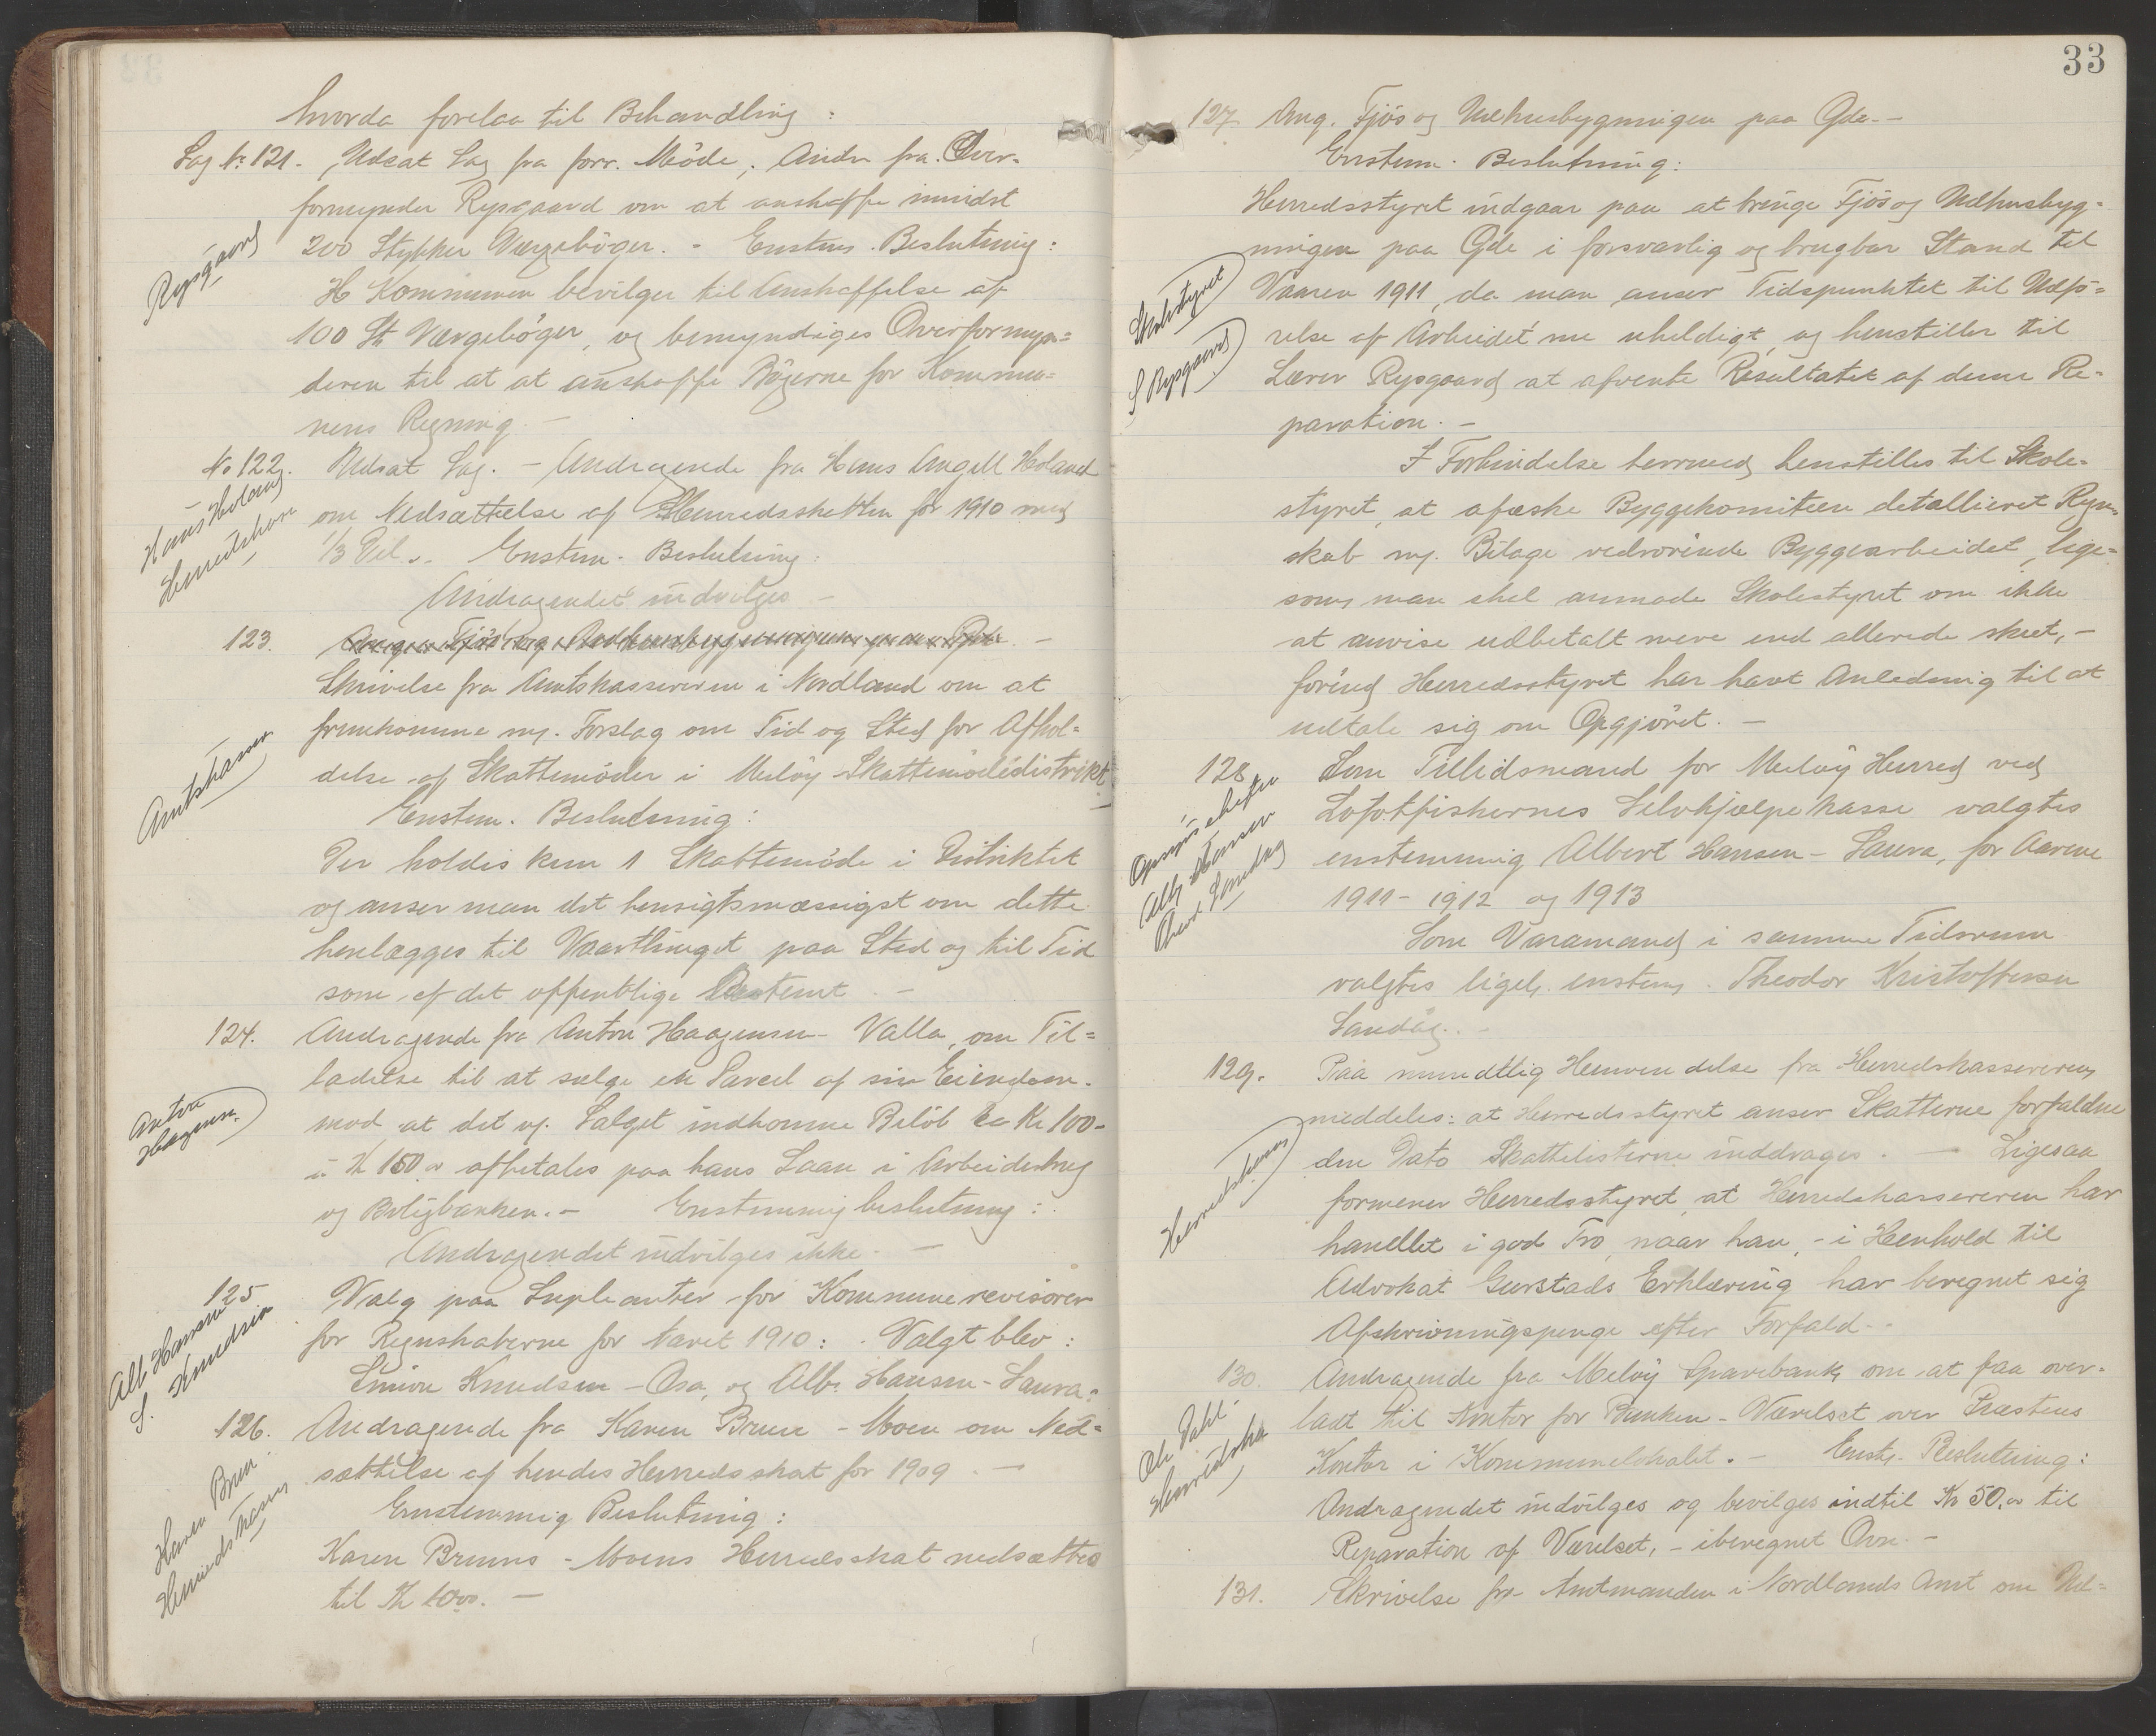 hvorda forelaa til Behandling :
Sag No 121. Udsat Sag fra forr. Møde; Andr fra Over-
formynder Rypgaard om at anskaffe mindst
200 Stykker Værgebøger. - Enstem. Beslutning :
Rypgaard
H Kommunen bevilger til Anskaffelse af
100 St Værgebøger, og bemyndiges Overformyn=
deren til at at anskaffe Bøgerne for Kommu=
nens Regning. -
No 122. Udsat Sag. - Andragende fra Hans Angell Holand
om Nedsættelse af Herredsskatten for 1910 med
1/3 Del. Enstem. Beslutning :
Hans Holand
Herredskass
Andragendet indvilges -
123. Angaa Fjøs og Uthusbygningen paa Øde. -
Skrivelse fra Amtskassereren i Nordland om at
fremkomme m. Forslag om Tid og Sted for Afhol=
delse af Skattemøder i Meløy Skattemødedistrikt.
Amtskasser
Enstem. Beslutning :
Der holdes kun 1 Skattemøde i Distriktet
og anser man det hensigtsmæssigst om dette
henlægges til Vaartinget paa Sted og til Tid
som af det offentlige bestemt. -
124. Andragende fra Anton Haagensen - Valla, om Til=
ladelse til at sælge en Parcel af sin Eiendom.
mod at det v. Salget indkomne Beløb ca Kr 100-
à Kr 150.00 afbetales paa hans Laan i Arbeiderbrug
og Boligbanken. - Enstemmig beslutning :
Anton
Haagensen.
Andragendet indvilges ikke. -
125 Valg paa Supleanter for Kommunerevisorer
for Regnskaberne for Aaret 1910 : . Valgt blev :
Simon Knudsen - Osa, og Alb. Hansen - Saura.
Alb Hansen
S. Knudsen
126. Andragende fra Karen Bruun - Moen om Ned=
sættelse af hendes Herredsskat for 1909. -
Enstemmig Beslutning :
Karen Bruuns - Moens Herredsskat nedsættes
til Kr 10.00. -
Karen Brun
Herredskasser
33
127 Ang. Fjøs og Udhusbygningen paa Øde. -
Enstem. Beslutning :
Herredsstyret indgaar paa at bringe Fjøs og Udhusbyg=
ningen paa Øde i forsvarlig og brugbar Stand til
Vaaren 1911, da man anser Tidspunktet til Udfø=
relse af Arbeidet nu uheldigt, og henstiller til
Lærer Rypgaard at afvente Resultatet af denne Re=
paration. -
Skolestyret
S Rypgaard
I Forbindelse hermed henstilles til Skole-
styret, at afæske Byggekomiteen detallieret Regn-
skab m. Bilage vedrørende Byggearbeidet, lige=
som man skal anmode Skolestyret om ikke
at anvise udbetalt mere end allerede skeet, -
førend Herredsstyret har havt Anledning til at
udtale sig om Opgjøret. -
128 Som Tillidsmand for Meløy Herred ved
Lofotfiskernes Selvhjælpekasse valgtes
enstemmig Albert Hansen - Saura, for Aarene
1911 - 1912 og 1913
Alb Hansen
Som Varamand i samme Tidsrum
valgtes ligel. enstem. Theodor Kristoffersen
Sandåg. -
129. Paa mundtlig Henvendelse fra Herredskassereren
meddeles : at Herredsstyret anser Skatterne forfaldne
den Dato Skattelisterne inddrages. - Ligesaa
formener Herredsstyret, at Herredskassereren har
handlet i god Tro, naar han, - i Henhold til
Advokat Gurstads Erklæring har beregnet sig
Afskrivningspenge efter Forfald. -
Herredskasser
130. Andragende fra Meløy Sparebank om at faa over-
ladt til Kontor for Banken - Værelset over Præstens
Kontor i Kommunelokalet. - Enst. Beslutning :
Andragendet indvilges og bevilges indtil Kr 50.00 til
Reparation af Værelset, - iberegnet Ovn. -
Ole Dahl.
Herredska
131. Skrivelse fra Amtmanden i Nordlands Amt om Ud=